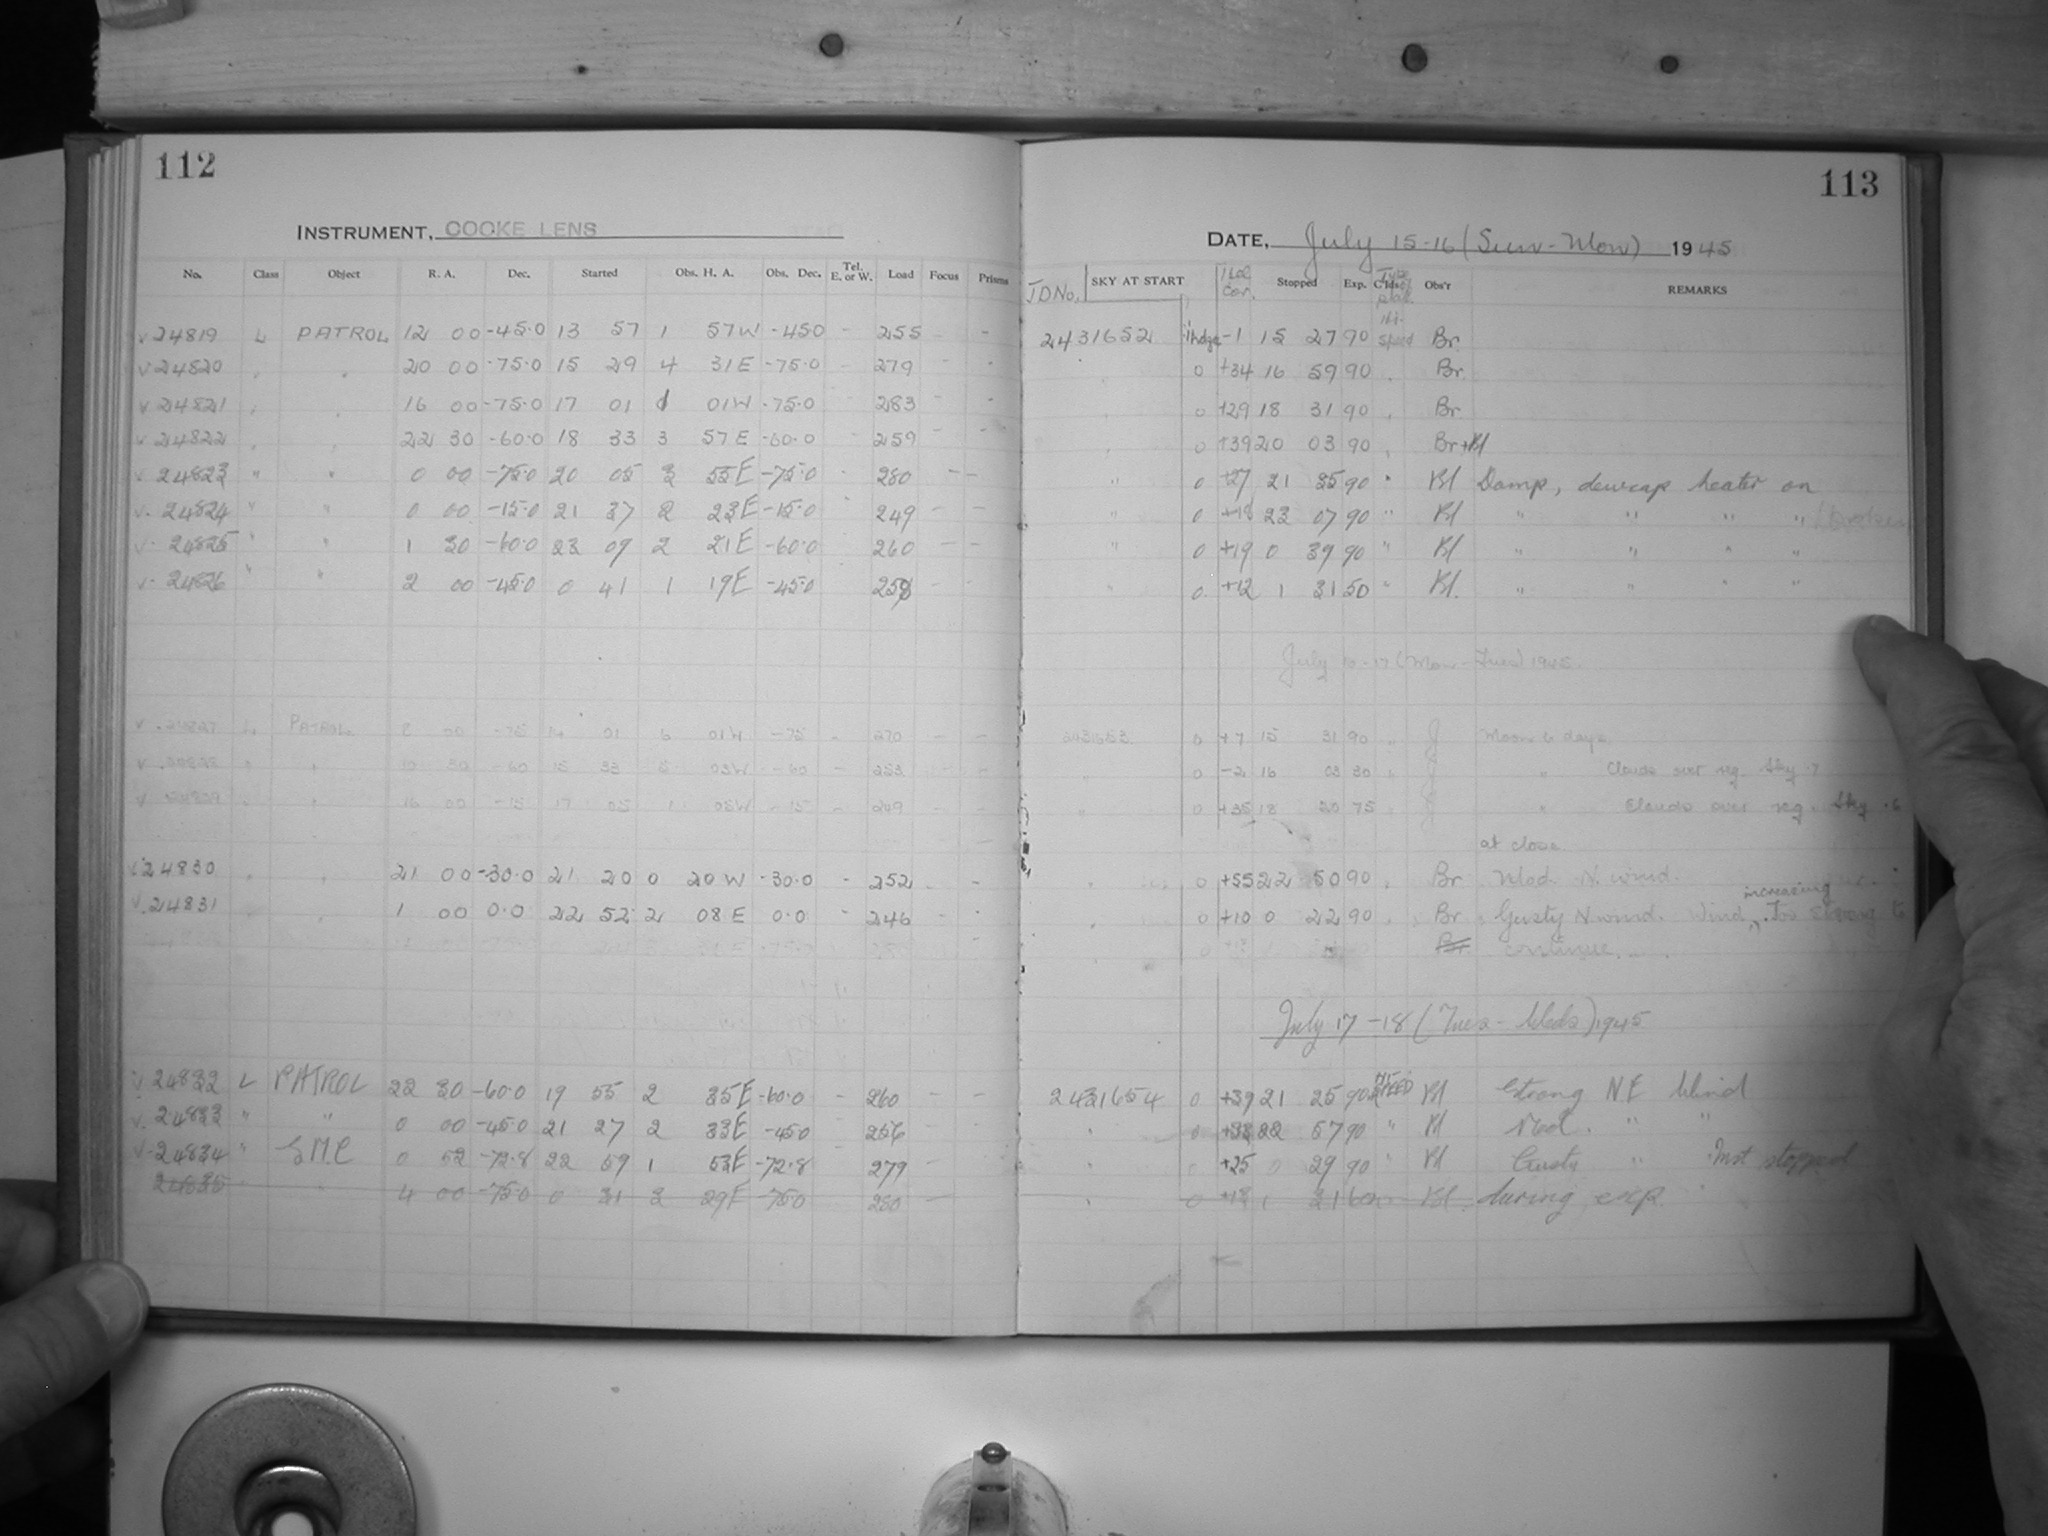 112
INSTRUMENT, COOKE LENS
No. Class Object R. A. Dec. Started Obs. H. A. Obs. Dec. Tel. E. or W. Load Focus Prisms
v 24819 L PATROL 12 00 -45.0 13 57 1 57W -45.0 - 255 - -
v 24820 " " 20 00 -75.0 15 29 4 31E -75.0 - 279 - -
v 24821 " " 16 00 -75.0 17 01 1 01W -75.0 - 283 - -
v 24822 " " 22 30 -60.0 18 33 3 57E -60.0 - 259 - -
v 24823 " " 0 00 -75.0 20 05 3 55E -75.0 - 280 - -
v 24824 " " 0 00 -15.0 21 37 2 23E -15.0 - 249 - -
v 24825 " " 1 30 -60.0 23 09 2 21E -60.0 260 - -
v 24826 " " 2 00 -45.0 0 41 1 19E -45.0 - -
v 24827 L PATROL 00 -75 14 01 6 01W -75 - 270 - -
v 30 -60 15 33 03W -60 - 253 - -
v 16 00 -15 17 05 1 05W -15 - 249 - -
v 24830 " " 21 00 -30.0 21 20 0 20W -30.0 - 252 - -
v 24831 " " 1 00 0.0 22 52 2 08E 0.0 - 246 - -
v 24832 L PATROL 22 30 -60.0 19 55 2 35E -60.0 - 260 - -
v 24833 " " 0 00 -45.0 21 27 2 33E -45.0 256
v 24834 " S.M.C 0 52 -72.8 22 59 1 53E -72.8 279 -
24835 " 4 00 -75.0 0 31 3 29E -75.0 280 -
113
DATE, July 15-16 (Sun-Mon) 1945
JD No. SKY AT START Stopped Exp. Obs'r REMARKS
2431652 -1 15 27 90 Hi-speed Br.
0 +34 16 59 90 " Br.
0 +29 18 31 90 " Br
0 +39 20 03 90 " Br+Bl
" 0 +27 21 35 90 " Bl Damp, dewcap heater on
" 0 +18 23 07 90 " Bl " " " " (broken
" 0 +19 0 39 90 " Bl " " " "
" 0 +12 1 31 50 " Bl. " " " "
July 16-17 (Mon-Tues) 1945.
2431653 0 +7 15 31 90 " J Moon 6 days.
" 0 -2 16 03 30 " J " Clouds over reg. Sky .7
" 0 +35 18 20 75 " J " Clouds over reg. Sky .6
at close.
" 0 +55 22 50 90 " Br Mod. N. wind.
" 0 +10 0 22 90 " Br Gusty N. wind. Wind increasing. Too strong to
Br. continue.
July 17-18 (Tues-Weds) 1945
2431654 0 +39 21 25 90 HI-SPEED Bl Strong NE Wind
" 0 +38 22 57 90 " Bl Mod. " "
" 0 +25 0 29 90 " Bl Gusty " " Inst stopped
" 0 +18 1 31 60 Bl. during exp.